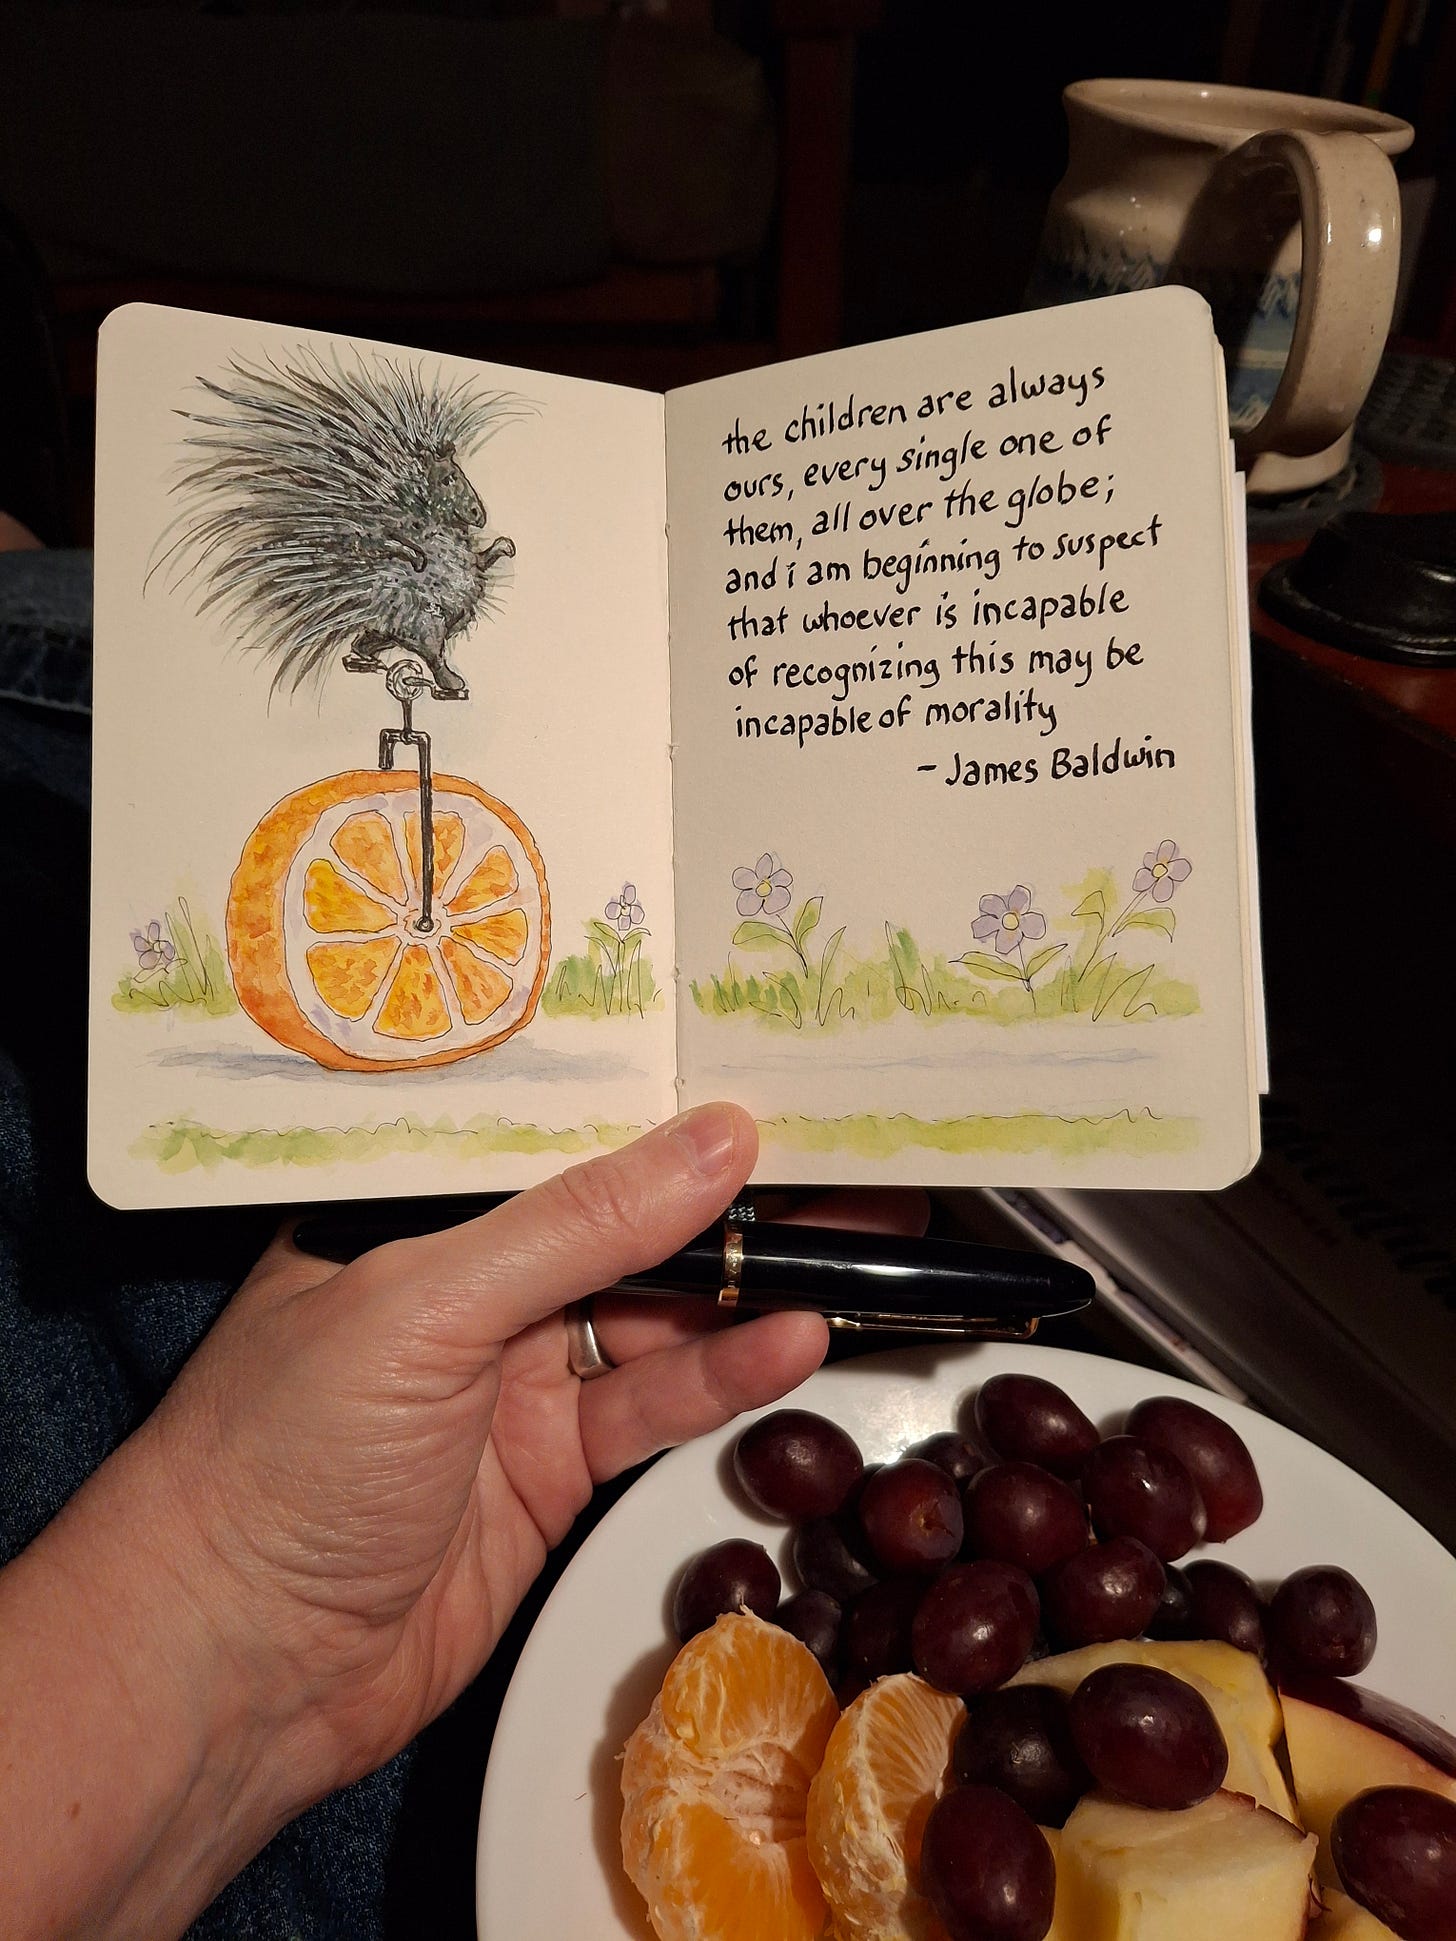 the children are always
ours, every single one of
them, all over the globe;
and i am beginning to suspect
that whoever is incapable
of recognizing this may be
incapable of morality
- James Baldwin